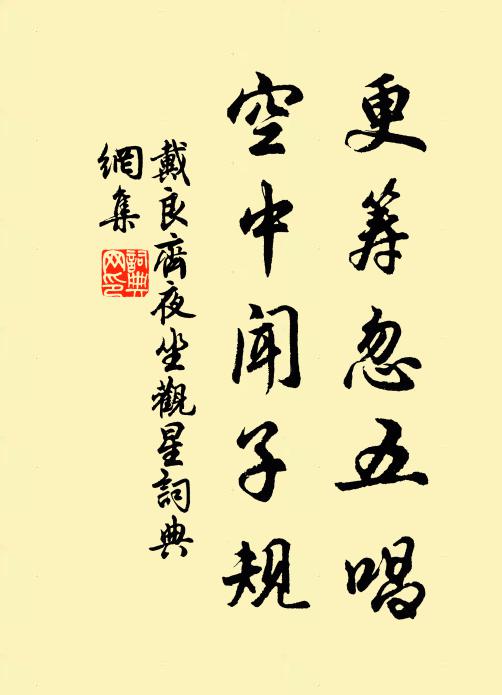 更筹忽五唱
空中闻子规
戴良齊夜坐觀星詞典
網集
詞典
网印